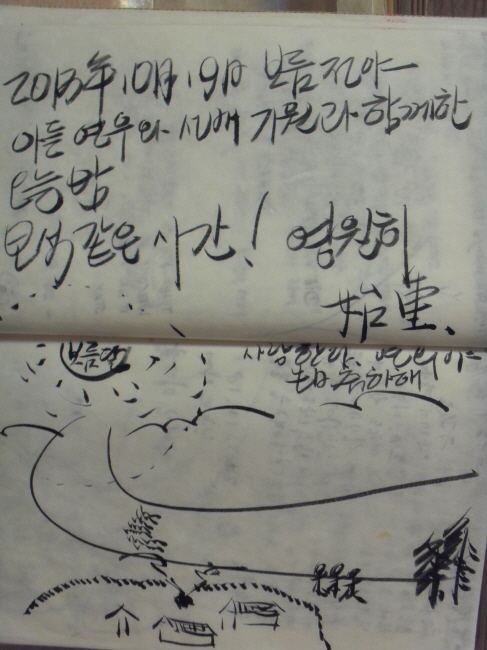 2013年10月19日 보름 전야
아들 연우와 선배 기원과 함께한
밤
같은 시간! 영원히
始重.
보름달
사랑한다. 연우야
축하해